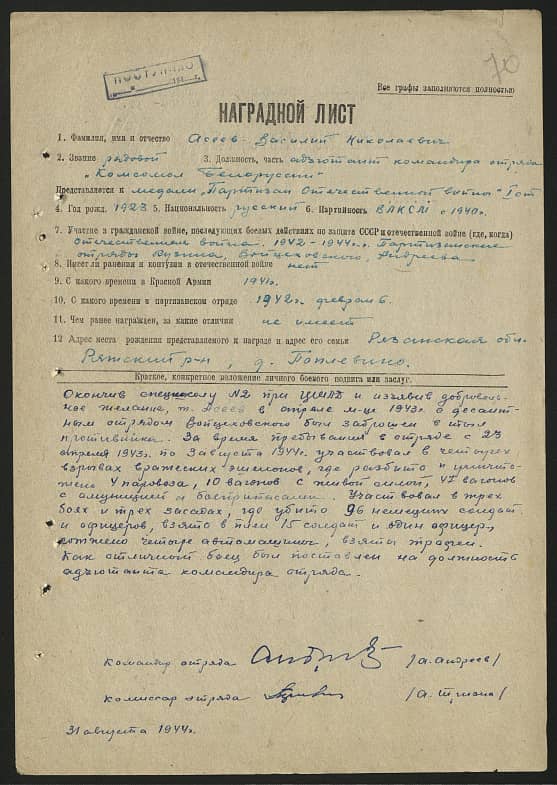 ПОСТУПИЛО
70
Все графы заполняются полностью
НАГРАДНОЙ ЛИСТ
1. Фамилия, имя и отчество Асеев Василий Николаевич
2. Звание рядовой 3. Должность, часть адъютант командира отряда
"Комсомол Белоруссии"
Представляется к медали "Партизан Отечественной войны" I ст
4. Год рожд. 1923 5. Национальность русский 6. Партийность ВЛКСМ с 1940г.
7. Участие в гражданской войне, последующих боевых действиях по защите СССР и отечественной войне (где, когда)
Отечественная война. 1942-1944г.г. Партизанские
отряды Войцеховского, Андреева
8. Имеет ли ранения и контузии в отечественной войне нет
9. С какого времени в Красной Армии 1941г.
10. С какого времени в партизанском отряде 1942г. февраль
11. Чем ранее награжден, за какие отличия не имеет
12 Адрес места рождения представляемого к награде и адрес его семьи Рязанская обл.
Ряжский р-н, д. Поплевино.
Краткое, конкретное изложение личного боевого подвига или заслуг.
Окончив спецшколу №2 при ЦШПД и изъявив доброволь-
ное желание, т. Асеев в апреле м-це 1943г. с десант-
ным отрядом Войцеховского был заброшен в тыл
противника. За время пребывания в отряде с 23
апреля 1943г. по 3 августа 1944г. участвовал в четырех
взрывах вражеских эшелонов, где разбито и уничто-
жено 4 паровоза, 10 вагонов с живой силой, 41 вагонов
с амуницией и боеприпасами. Участвовал в трех
боях и трех засадах, где убито 96 немецких солдат
и офицеров, взято в плен 15 солдат и один офицер,
сожжено четыре автомашины, взяты трофеи.
Как отличный боец был поставлен на должность
адъютанта командира отряда.
Командир отряда /А. Андреев/
Комиссар отряда
31 августа 1944г.